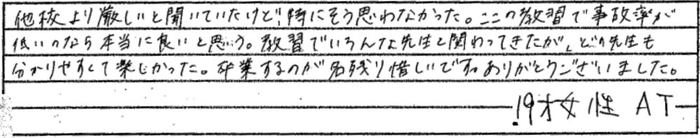 他校より厳しいと聞いていたけど!特にそう思わなかった。ここの教習で事故率が
低いのなら本当に良いと思う。教習でいろんな先生と関わってきたが、どの先生も
分かりやすくて楽しかった。卒業するのが名残り惜しいです。ありがとうございました。
19才女性 AT